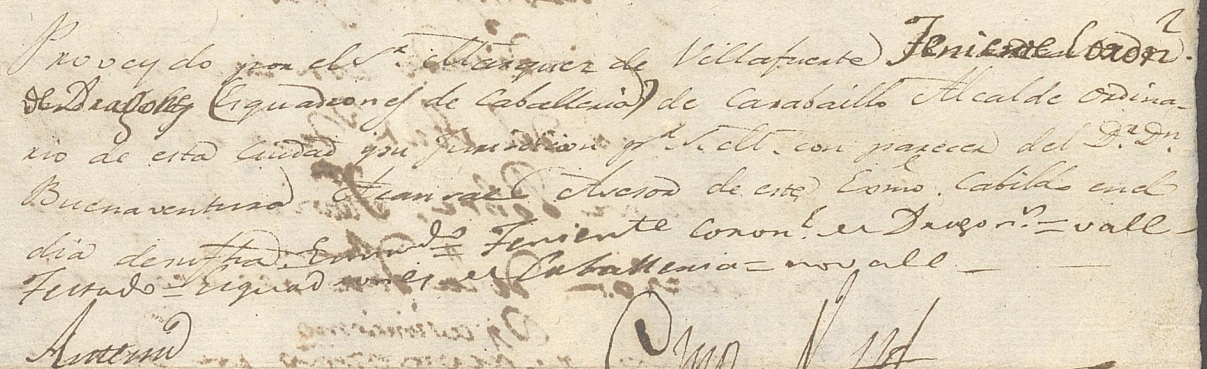 Proveydo por el S.r Marquez de Villafuerte Teniente Coron.l
de Dragones Esquadrones de Caballeria de Carabaillo Alcalde ordina-
rio de esta Ciudad y su Jurisdicion p.r S. M. con parecer del D.r D.n
Buenaventura Aransaes Asesor de este Exmo. Cabildo en el
dia de su fha. Enm.do = Teniente Coron.l de Dragon.s = vale
Testado = Esquadrones de Caballeria = no vale
Antemi